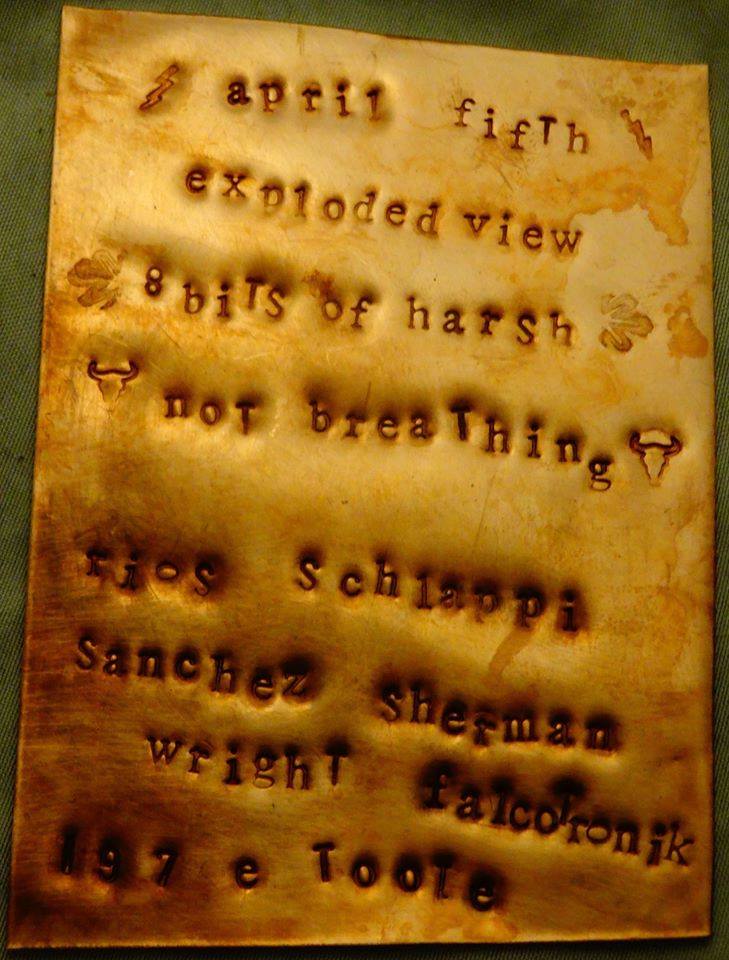 april fifTh
exploded view
8 biTS of harsh
noT breaThing
rios Schlappi
Sanchez Sherman
wrighT falcoTronik
197 e TooTe